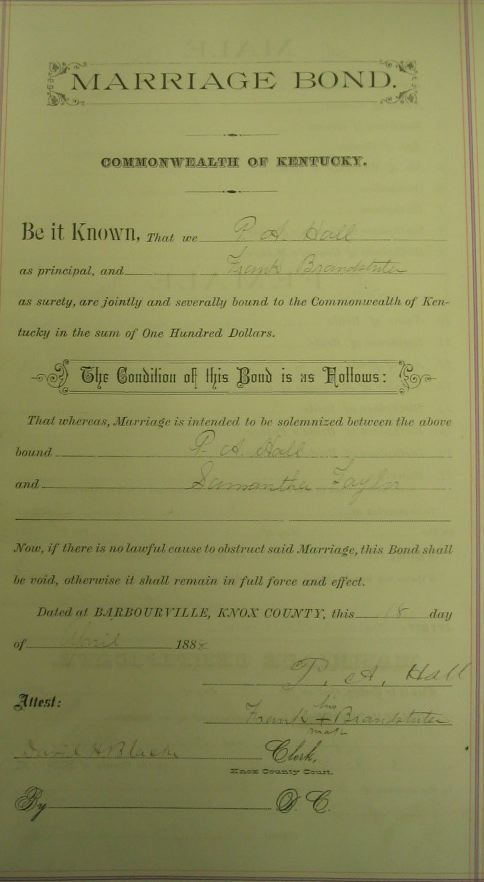 MARRIAGE BOND.
COMMONWEALTH OF KENTUCKY.
Be it Known, That we P. A. Hall
as principal, and Frank Brandstuter
as surety, are jointly and severally bound to the Commonwealth of Ken-
tucky in the sum of One Hundred Dollars.
The Condition of this Bond is as Follows:
That whereas, Marriage is intended to be solemnized between the above
bound P. A. Hall
and Samantha Taylor
Now, if there is no lawful cause to obstruct said Marriage, this Bond shall
be void, otherwise it shall remain in full force and effect.
Dated at BARBOURVILLE, KNOX COUNTY, this 18 day
of April 188
P. A. Hall
Attest:
his
Frank + Brandstuter
mark
David H Black Clerk,
Knox County Court.
By D. C.